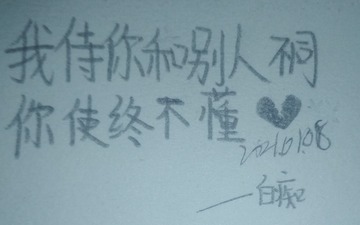 我待你和别人不同
你使终不懂
2021.01.08
——白痴